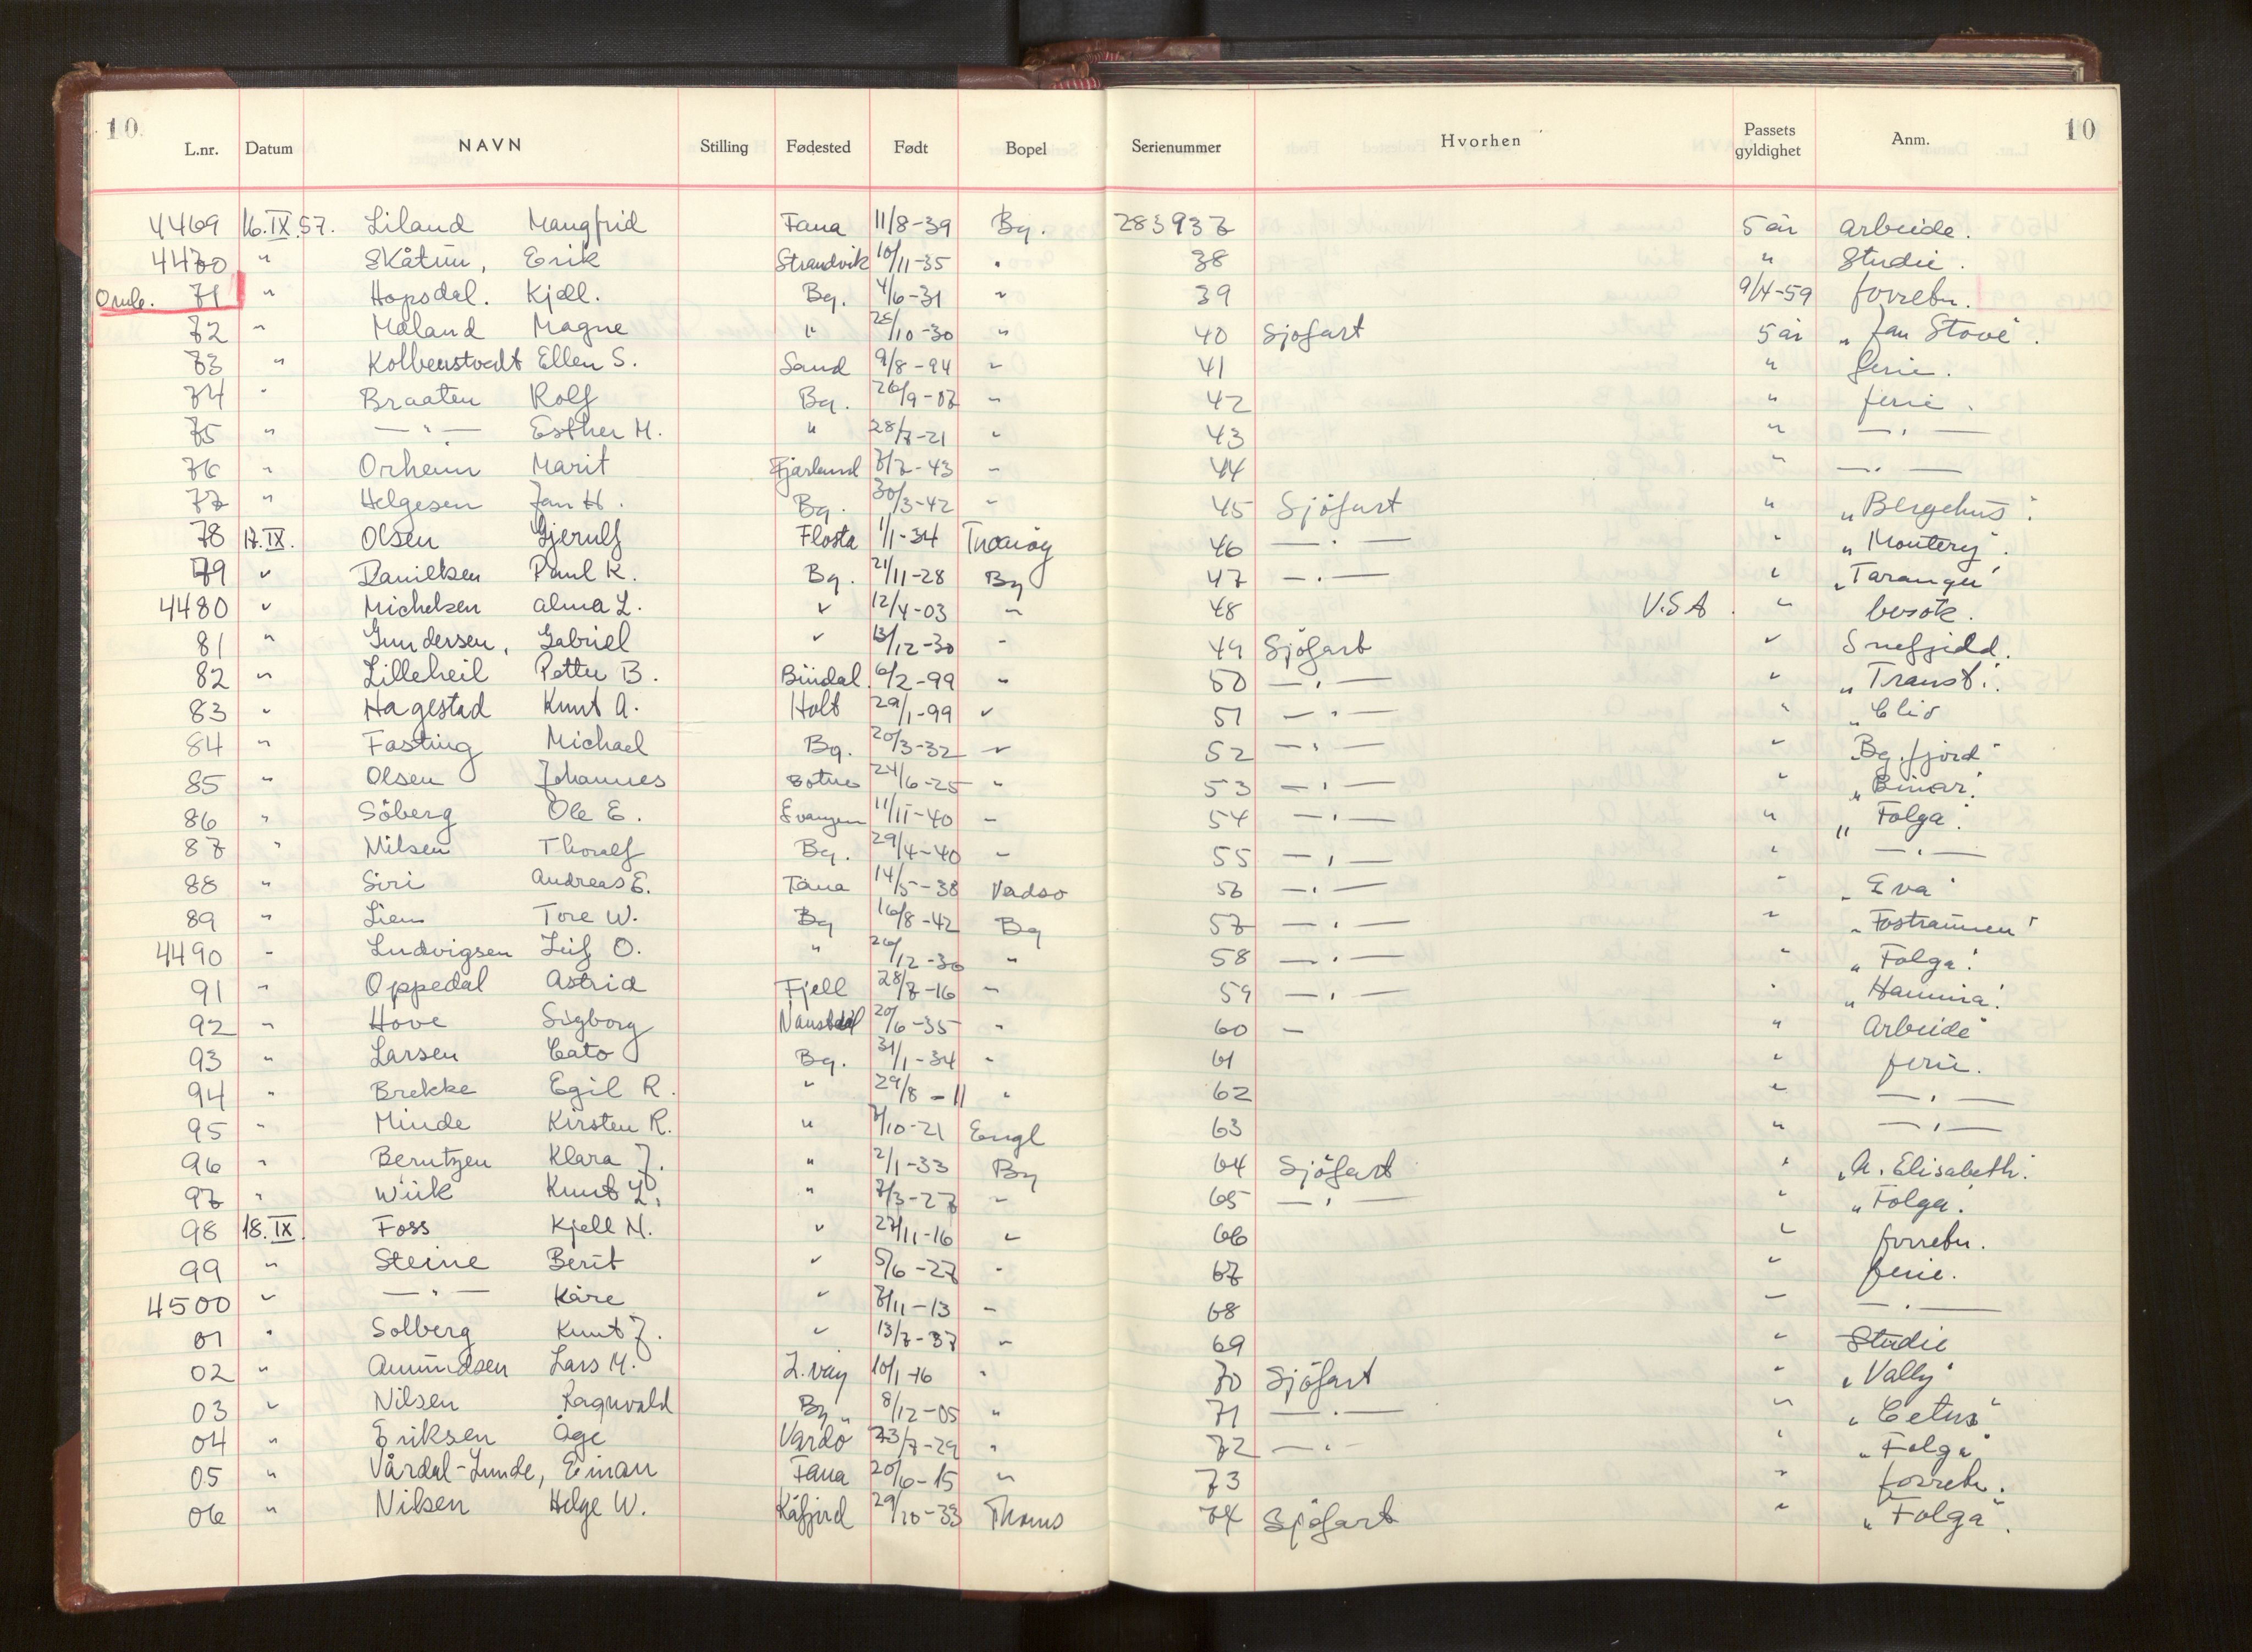 10. 10
L.nr. Datum NAVN Stilling Fødested Født Bopel Serienummer Hvorhen Passets gyldighet Anm.
4469 16.IX.57. Liland Mangfrid Fana 11/8-39 Bg. 283937 5 år Arbeide.
4470 " Skåtun, Erik Strandvik 10/11-35 " 38 " Studie.
Omb. 71 " Hopsdal. Kjell. Bg. 4/6-31 " 39 9/4-59 forretn.
72 " Måland Magne " 28/10-30 " 40 Sjøfart 5 år "Jan Stove".
73 " Kolbenstvedt Ellen S. Sand 9/8-94 " 41 " ferie.
74 " Braaten Rolf Bg. 26/9-07 " 42 " ferie.
75 " —"— Esther M. " 28/7-21 " 43 " —"—
76 " Orheim Marit Fjærland 7/7-43 " 44 " —"—
77 " Helgesen Jan H. Bg. 30/3-42 " 45 Sjöfart " "Bergehus".
78 17.IX. Olsen Gjerulf Flosta 1/1-34 Tromøy 46 —"— " "Montery".
79 " Danielsen Paul K. Bg. 21/11-28 Bg 47 —"— " "Taranger"
4480 " Michelsen Alma L. " 12/4-03 " 48 U.S.A. " besøk.
81 " Gundersen, Gabriel " 13/12-30 " 49 Sjöfart " Snefjeld.
82 " Lilleheil Petter B. Bindal 6/2-99 " 50 —"— " "Transt".
83 " Hagestad Knut A. Holt 29/1-99 " 51 —"— " "Clio
84 " Fasting Michael Bg. 20/3-32 " 52 —"— " "Bg.fjord"
85 " Olsen Johannes Botne 24/6-25 " 53 —"— " "Binar".
86 " Söberg Ole E. Evangen 11/11-40 " 54 —"— " "Folga".
87 " Nilsen Thoralf Bg. 29/4-40 " 55 —"— " —"—
88 " Siri Andreas E. Tana 14/5-38 Vadsø 56 —"— " "Eva"
89 " Lien Tore W. Bg 16/8-42 Bg 57 —"— " "Fostraumen"
4490 " Ludvigsen Leif O. " 26/12-30 " 58 —"— " "Folga".
91 " Oppedal Astrid Fjell 28/7-16 " 59 —"— " "Hamina".
92 " Hove Sigborg Naustdal 20/6-35 " 60 — " Arbeide
93 " Larsen Cato Bg. 31/1-34 " 61 " ferie.
94 " Brekke Egil R. " 29/8-11 " 62 " —"—
95 " Minde Kirsten R. " 7/10-21 Engl 63 " —"—
96 " Berntzen Klara J. " 2/1-33 Bg 64 Sjöfart " "A. Elisabeth".
97 " Wiik Knut L. " 7/3-27 " 65 —"— " "Folga".
98 18.IX. Foss Kjell N. " 27/11-16 " 66 " forretn.
99 " Steine Berit " 5/6-27 " 67 " ferie.
4500 " —"— Kåre " 7/11-13 " 68 " —"—
01 " Solberg Knut J. " 13/7-37 " 69 " Studie
02 " Amundsen Lars M. L.våg 10/1-16 " 70 Sjöfart " "Vally"
03 " Nilsen Ragnvald Bg " 8/12-05 " 71 —"— " "Cetus"
04 " Eriksen Åge Vardø 23/7-29 " 72 —"— " "Folga"
05 " Vårdal-Lunde, Einar Fana 20/6-15 " 73 " forretn.
06 " Nilsen Helge W. Kåfjord 29/10-33 Troms 74 Sjöfart " "Folga".